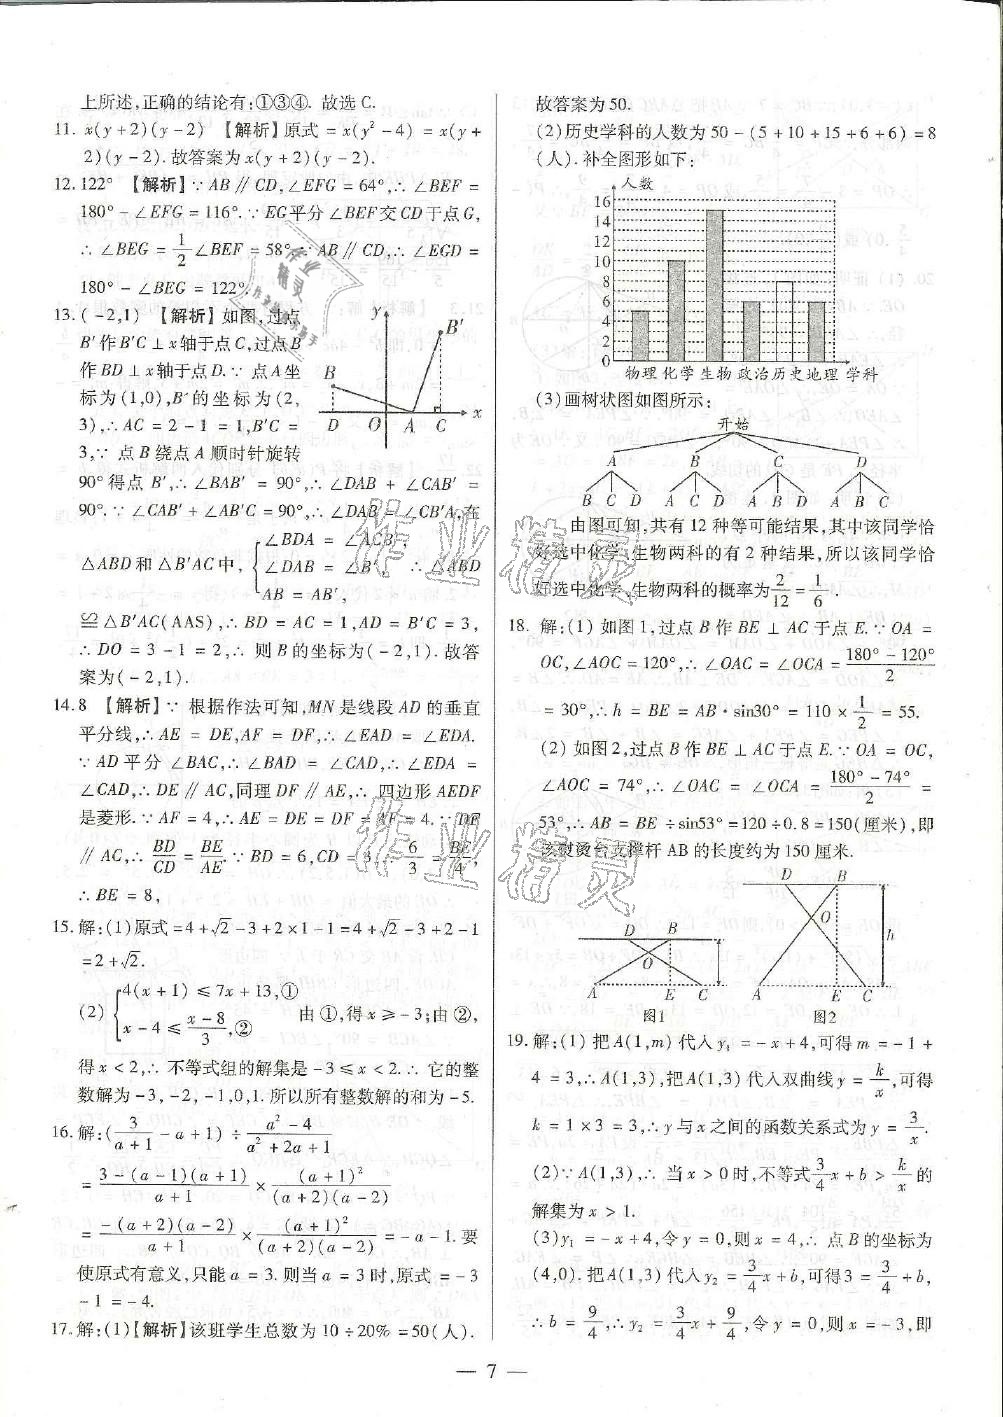 上所述,正确的结论有:①③④. 故选C.
11. x(y+2)(y-2) 【解析】原式=x(y²-4)=x(y+
2)(y-2).故答案为x(y+2)(y-2).
12. 122° 【解析】∵AB∥CD,∠EFG=64°,∴∠BEF=
180°-∠EFG=116°.∵EG平分∠BEF交CD于点G,
∴∠BEG=1/2∠BEF=58°∵AB∥CD,∴∠EGD=
180°-∠BEG=122°.
13. (-2,1) 【解析】如图,过点
B′作B′C⊥x轴于点C,过点B
作BD⊥x轴于点D.∵点A坐
标为(1,0),B′的坐标为(2,
3),∴AC=2-1=1,B′C=
3,∵点B绕点A顺时针旋转
y
B′
B
D O A C x
90°得点B′,∴∠BAB′=90°,∴∠DAB+∠CAB′=
90°.∵∠CAB′+∠AB′C=90°,∴∠DAB=∠CB′A.在
△ABD和△B′AC中,{∠BDA=∠ACB′
∠DAB=∠B′
AB=AB′,
∴△ABD
≌△B′AC(AAS),∴BD=AC=1,AD=B′C=3,
∴DO=3-1=2,∴则B的坐标为(-2,1).故答
案为(-2,1).
14. 8 【解析】∵根据作法可知,MN是线段AD的垂直
平分线,∴AE=DE,AF=DF,∴∠EAD=∠EDA.
∵AD平分∠BAC,∴∠BAD=∠CAD,∴∠EDA=
∠CAD,∴DE∥AC,同理DF∥AE,∴四边形AEDF
是菱形.∵AF=4,∴AE=DE=DF=AF=4.∵DE
∥AC,∴BD/CD=BE/AE.∵BD=6,CD=3,∴6/3=BE/4,
∴BE=8,
15. 解:(1)原式=4+√2-3+2×1-1=4+√2-3+2-1
=2+√2.
(2){4(x+1)≤7x+13,①
x-4≤(x-8)/3,②
由①,得x≥-3;由②,
得x<2,∴不等式组的解集是-3≤x<2.∴它的整
数解为-3,-2,-1,0,1.所以所有整数解的和为-5.
16. 解:(3/(a+1)-a+1)÷(a²-4)/(a²+2a+1)
=(3-(a-1)(a+1))/(a+1)×(a+1)²/((a+2)(a-2))
=(-(a+2)(a-2))/(a+1)×(a+1)²/((a+2)(a-2))=-a-1.要
使原式有意义,只能a=3.则当a=3时,原式=-3
-1=-4.
17. 解:(1)【解析】该班学生总数为10÷20%=50(人).
故答案为50.
(2)历史学科的人数为50-(5+10+15+6+6)=8
(人).补全图形如下:
人数
16
14
12
10
8
6
4
2
0
物理 化学 生物 政治 历史 地理 学科
(3)画树状图如图所示:
开始
A B C D
B C D A C D A B D A B C
由图可知,共有12种等可能结果,其中该同学恰
好选中化学、生物两科的有2种结果,所以该同学恰
好选中化学、生物两科的概率为2/12=1/6.
18. 解:(1)如图1,过点B作BE⊥AC于点E.∵OA=
OC,∠AOC=120°,∴∠OAC=∠OCA=(180°-120°)/2
=30°,∴h=BE=AB·sin30°=110×1/2=55.
(2)如图2,过点B作BE⊥AC于点E.∵OA=OC,
∠AOC=74°,∴∠OAC=∠OCA=(180°-74°)/2=
53°,∴AB=BE÷sin53°=120÷0.8=150(厘米),即
该熨烫台支撑杆AB的长度约为150厘米.
D B
O
A E C
图1
D B
O
h
A E C
图2
19. 解:(1)把A(1,m)代入y₁=-x+4,可得m=-1+
4=3,∴A(1,3),把A(1,3)代入双曲线y=k/x,可得
k=1×3=3,∴y与x之间的函数关系式为y=3/x.
(2)∵A(1,3),∴当x>0时,不等式3/4x+b>k/x的
解集为x>1.
(3)y₁=-x+4,令y=0,则x=4,∴点B的坐标为
(4,0).把A(1,3)代入y₂=3/4x+b,可得3=3/4+b,
∴b=9/4,∴y₂=3/4x+9/4,令y=0,则x=-3,即
— 7 —
作业精灵
作业精灵
作业精灵